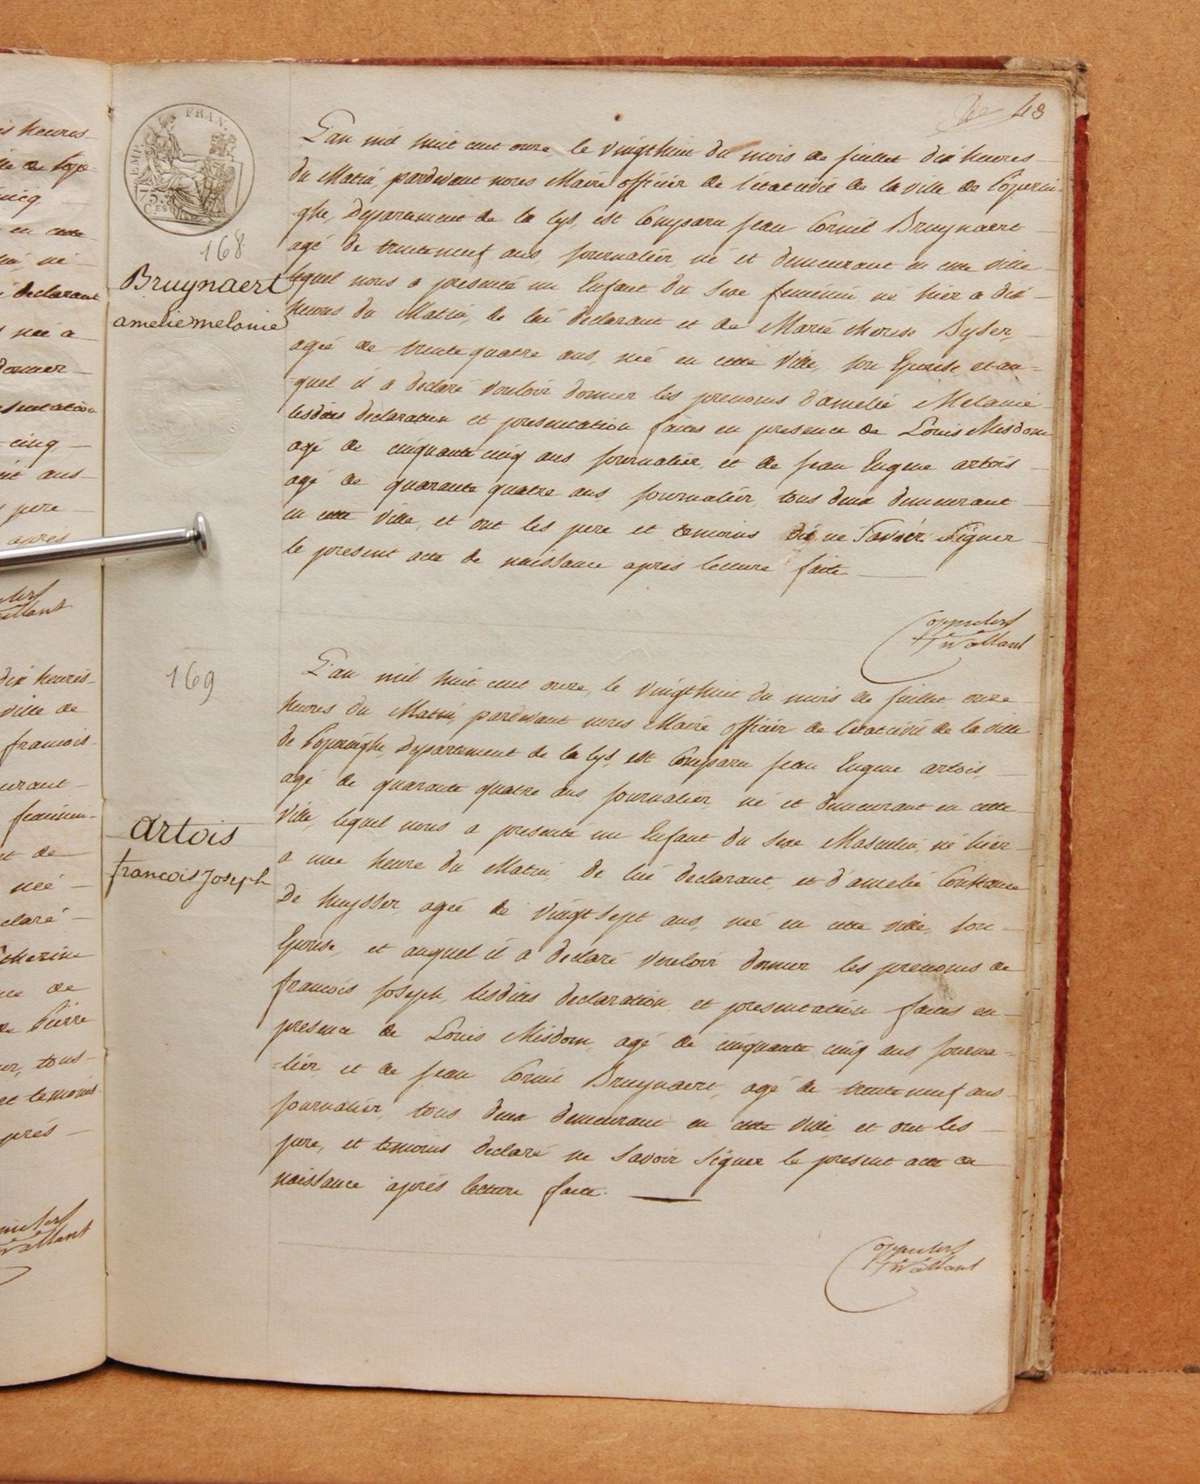 48
168
Bruynaert
amelie melanie
L'an mil huit cent onze, le vingthuit du mois de juillet dix heures
du Matin pardevant nous Maire officier de l'etat civil de la ville de Poperin-
ghe, Departement de la Lys, est Comparu jean Cornil Bruynaert
agé de trenteneuf ans journalier né et demeurant en cette ville
lequel nous a presenté un Enfant du sexe feminin né hier a dix
heures du Matin, de lui declarant et de Marie therese Syser,
agée de trente quatre ans, née en cette ville, son Epouse, et au-
quel il a declaré vouloir donner les prenoms d'amelie Melanie
lesdites declaration et presentation faites en presence de Louis Misdom
agé de cinquante cinq ans journalier, et de jean Eugene artois
agé de quarante quatre ans journalier, tous deux demeurant
en cette ville, et ont les pere et temoins dé ne Savoir Signer
le present acte de naissance après lecture faite
169
artois
francois Joseph
L'an mil huit cent onze, le vingthuit du mois de juillet onze
heures du Matin, pardevant nous Maire officier de l'etat civil de la ville
de Poperinghe, Departement de la Lys, est Comparu jean Eugene artois
agé de quarante quatre ans journalier, né et demeurant en cette
ville, lequel nous a presenté un Enfant du sexe Masculin, né hier
a une heure du Matin, de lui declarant, et d'amelie Constance
De huysser, agée de vingt sept ans, née en cette ville, son
Epouse, et auquel il a declaré vouloir donner les prenoms de
francois Joseph, lesdites declaration et presentation faites en
presence de Louis Misdom, agé de cinquante cinq ans journa-
lier, et de jean Cornil Bruynaert, agé de trenteneuf ans
journalier, tous deux demeurant en cette ville, et ont les
pere, et temoins declaré ne Savoir Signer le present acte de
naissance après lecture faite.